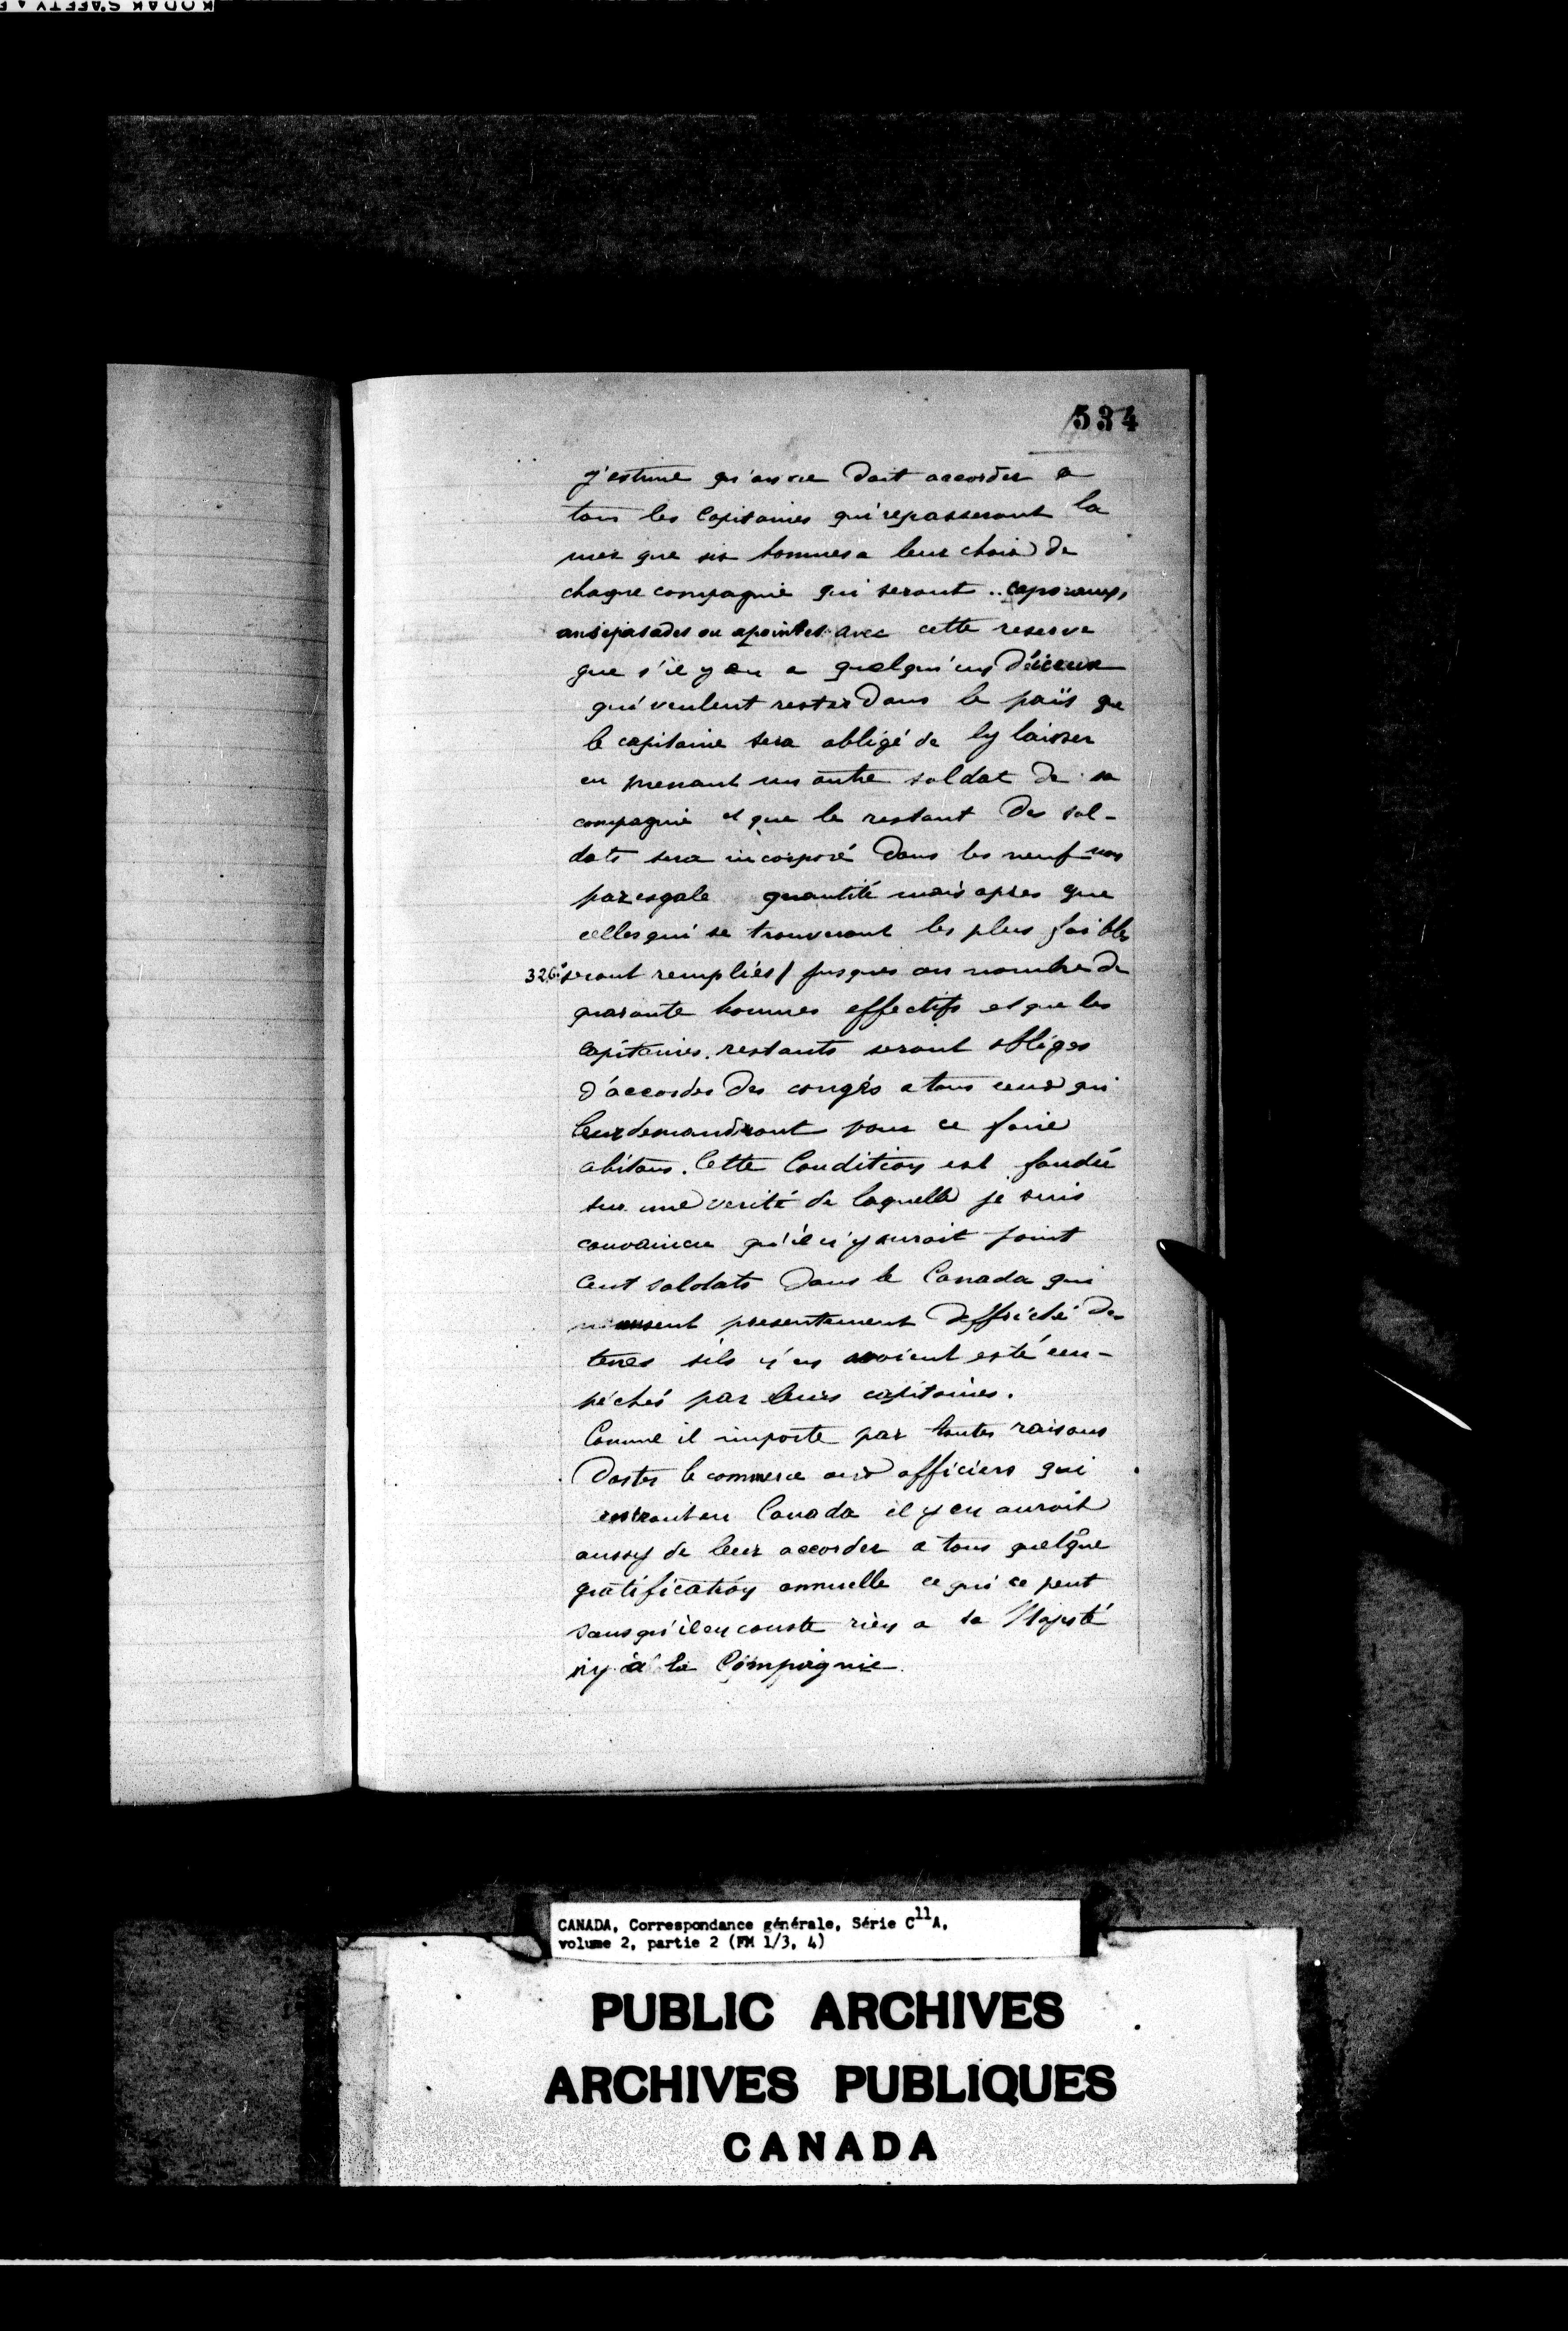 534
j'estime qu'on ne doit accorder a
tous les Capitaines qui repasseront la
mer que six hommes a leur choix de
chaque compagnie qui seront .. caporaux,
anspesades ou apointes avec cette reserve
que s'il y en a quelqu'uns d'iceux
qui veulent rester Dans le païs que
le capitaine sera obligé de ly laisser
en prenant un autre soldat de sa
compagnie et que le restant des sol-
dats sera incorporé Dans les neuf
par esgale quantité mais apres que
celles qui se trouveront les plus faibles
326 seront remplies / jusques au nombre de
quarante hommes effectifs et que les
Capitaines restants seront obliges
d'accorder des congés a tous ceux qui
leur demandront pour ce faire
abitans. Cette Condition est fondée
sur une verité de laquelle je suis
convaincu qu'il n'y auroit point
Cent soldats Dans le Canada qui
n'eussent presentement deffriché des
terres sils n'en avoient esté em-
pechés par leurs capitaines.
Comme il importe par toutes raisons
Doster le commerce aux officiers qui
restront en Canada il y en auroit
aussy de leur accorder a tous quelque
gratification annuelle ce qui se peut
sans qu'il en couste rien a sa Majesté
ny à la Compagnie.
CANADA, Correspondance générale, Série C11A,
volume 2, partie 2 (FM 1/3, 4)
PUBLIC ARCHIVES
ARCHIVES PUBLIQUES
CANADA